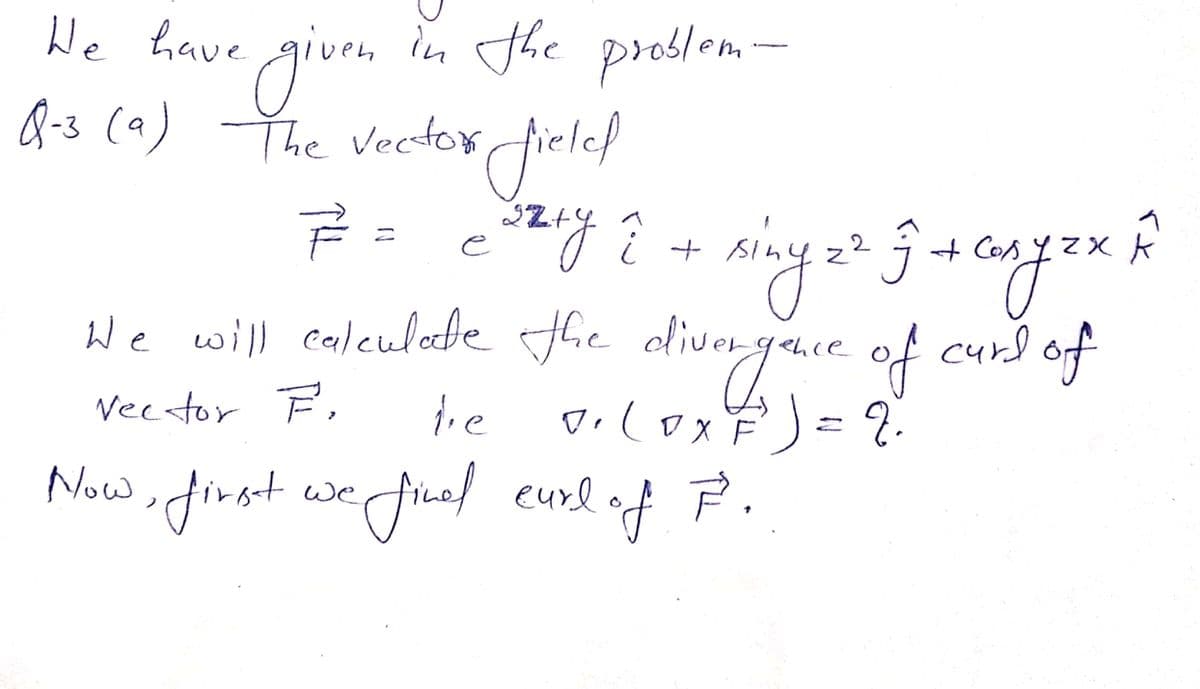 We have given in the problem-
Q-3 (a) The vector field
F⃗ = e^{2z+y} î + sin y z² ĵ + cos y z x k̂
We will calculate the divergence of curl of
vector F⃗. i.e ∇·(∇×F⃗) = ?.
Now, first we find curl of F⃗.